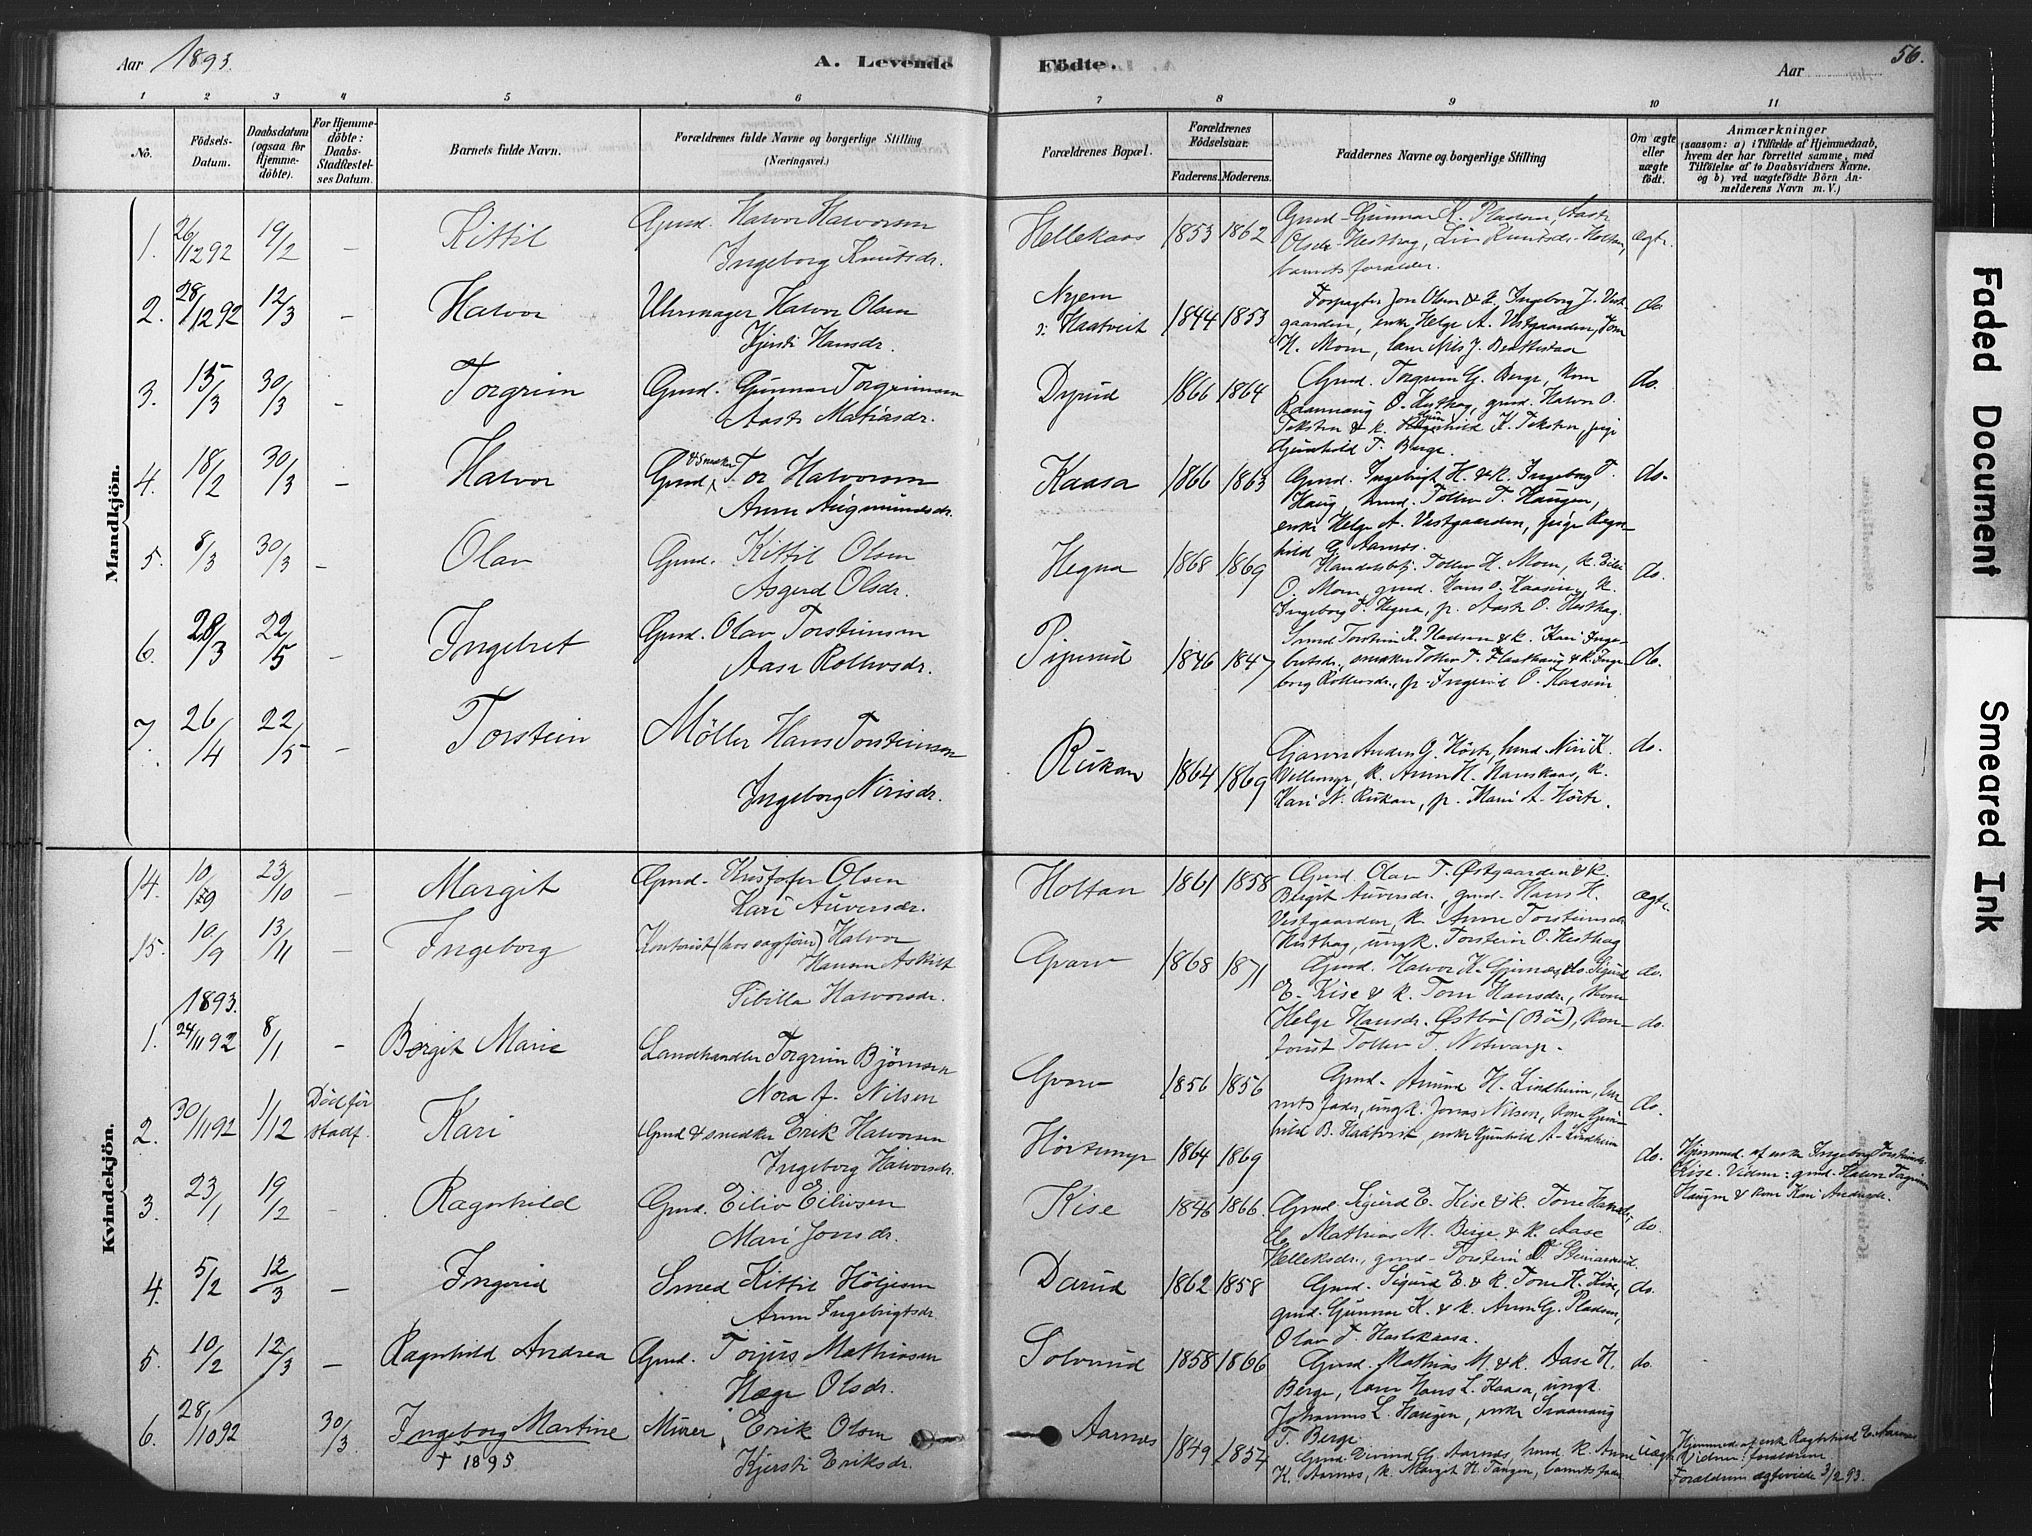 Aar 1893.
A. Levende Födte.
Aar
56.
1 2 3 4 5 6 7 8 9 10 11
No.
Födsels-Datum.
Daabsdatum (ogsaa for Hjemme-döbte).
For Hjemme-döbte: Daabs-Stadfæstel-ses Datum.
Barnets fulde Navn.
Forældrenes fulde Navne og borgerlige Stilling (Næringsvei.)
Forældrenes Bopæl.
Forældrenes Födselsaar.
Faderens. Moderens.
Faddernes Navne og borgerlige Stilling
Om ægte eller uægte födt.
Anmærkninger
(saasom: a) i Tilfælde af Hjemmedaab,
hvem der har forrettet samme, med
Tilföielse af to Daabsvidners Navne.
og b) ved uægtefödte Börn An-
melderens Navn m. V.)
Mandkjön.
1. 26/12 92 19/2 – Kittil Gmd. Halvor Halvorsen
Ingeborg Knutsdr.
Hellekaas 1853 1862 Gmd. Gunnar K. Pladsen, Aaste
Olsdr. Hesthag, Liv Knutsdr. Holtan, ægte.
barnets forælder.
2. 28/12 92 12/3 – Halvor Uhrmager Halvor Olsen
Kjersti Hansdr.
Haatveit 1844 1853 Forpagter Jon Olsen & k. Ingeborg J. Vest- do.
gaarden, enke Helge A. Vestgaarden, Tone
K. Moen, lærer Nils J.
3. 15/3 30/3 – Torgrim Gmd. Gunnar Torgrimsen
Aaste Matiasdr.
Dyrud 1866 1864 Gmd. Torgrim G. Berge, kone do.
Rannaug O. Hesthag, gmd. Halvor O.
Teksten & k. Gunhild K. Teksten, pige
Gunhild T. Berge.
4. 18/2 30/3 – Halvor Gmd. & snedker Tor Halvorsen
Anne Augmundsdr.
Kaasa 1866 1863 Gmd. Ingebrigt H. & k. Ingeborg T. do.
Haug, Tollev T. Haugen,
enke Helge A. Vestgaarden, pige Ragn-
hild G. Aarnes.
5. 8/3 30/3 – Olav Gmd. Kittil Olsen
Asgerd Olsdr.
Hegna 1868 1869 Handelsbetj. Tollev H. Moen, k. do.
O. Moen, gmd. Hans O. Kaasen, k.
Ingeborg T. Hegna, p. Aaste O. Hesthag.
6. 28/3 22/5 – Ingebret Gmd. Olav Torsteinsen
Aase Rollevsdr.
Piperud 1846 1847 Smed Torstein R. Pladsen & k. Kari Inge- do.
bretsdr., snedker Tollev T. & k. Inge-
borg Rollevsdr., p. Ingerid O. Kaasen.
7. 26/4 22/5 – Torstein Møller Hans Torsteinsen
Ingeborg Nirisdr.
Rukan 1864 1869 Garver Anders G. Hörte, Niri K. do.
k. Anne H. Hanskaas, k.
Kari N. Rukan, p. Mari A. Hörte.
Kvindekjön.
14. 10/9 23/10 – Margit Gmd. Kristofer Olsen
Kari Auversdr.
Holtan 1861 1858 Gmd. Olav T. Østgaarden & k. ægte.
Bergit Auversdr., gmd. Hans H.
Vestgaarden, k. Anne Torsteinsdr.
Hesthag, ungk. Torstein O. Hesthag
15. 10/9 13/11 – Ingeborg Kontorist (hos sagfører) Halvor
Hansen Askilt
Sibilla Halvorsdr.
Gvarv 1868 1871 Gmd. Halvor K. do. Sigurd do.
E. Kise & k. Tone Hansdr., kone
Helge Hansdr. Østbö (Bö), kon-
torist Tollev T. Notvarp.
1893.
1. 24/11 92 8/1 – Borgit Marie Landhandler Torgrim Björnsen
Nora f. Nilsen
Gvarv 1856 1856 Gmd. Amund H. Lindheim, bar- do.
nets fader, ungk. Jonas Nilsen, kone Gun-
hild B. Haatveit, enke Gunhild A. Lindheim
2. 30/11 92 1/12 Död før stadf. Kari Gmd & snedker Erik Halvorsen
Ingeborg Halvorsdr.
Hörtemyr 1864 1869 do. Hjemmed. af enke Ingeborg Torsteinsdr.
Kise. Vidner: gmd. Halvor
Haugen & kone Kari Andersdr.
3. 23/1 19/2 – Ragnhild Gmd. Eiliv Eilivsen
Mari Jonsdr.
Kise 1846 1866 Gmd. Sigurd E. Kise & k. Tone Hansdr., do.
do. Mathias M. Berge & k. Aase
Helleksdr., gmd. Torstein O.
4. 5/2 12/3 – Ingerid Smed Kittil Höljesen
Anne Ingebrigtsdr.
Darud 1862 1858 Gmd. Sigurd E. & k. Tone H. Kise, do.
gmd. Gunnar K. & k. Anne G. Pladsen,
Olav T. Haslekaasa.
5. 10/2 12/3 – Ragnhild Andrea Gmd. Torjus Mathiasen
Hæge Olsdr.
Solverud 1858 1866 Gmd. Mathias M. & k. Aase H. do.
Berge, lærer Hans L. Kaasa, ungk.
Johannes L. Haugen, enke Rannaug
T. Berge.
6. 28/10 92 30/3 Ingeborg Martine Murer, Erik Olsen
† 1895 Kjersti Eriksdr.
Aarnes 1849 1857 Gmd. Eivind G. Aarnes, k. Anne uægte
K. Aarnes, k. Margit H. Tangen, barnets fader
Hjemmed. af enke Ragnhild E. Aarnes
Vidner: forældrene.
Forældrene ægteviede 3/2 93.
Faded Document
Smeared Ink